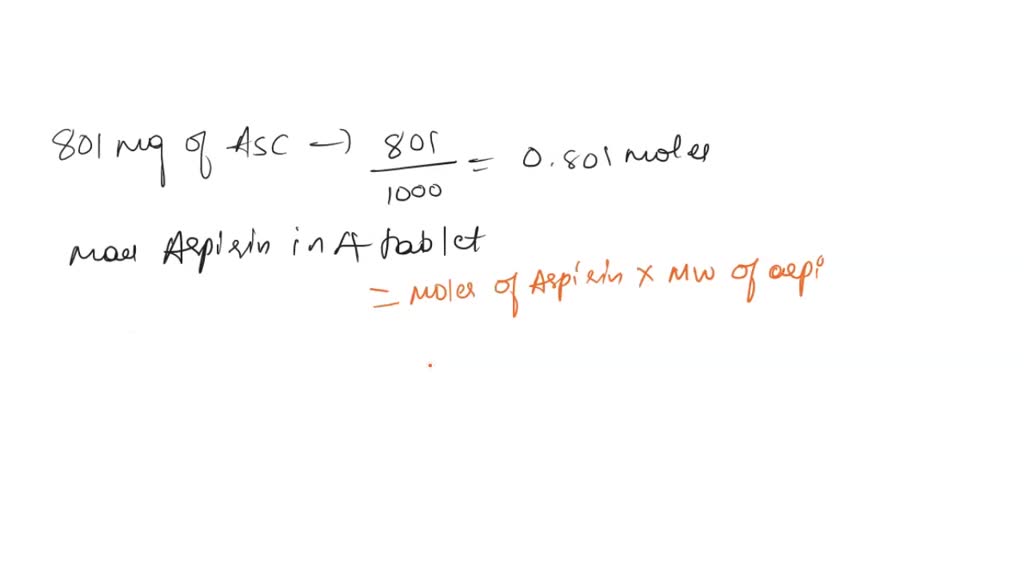 801 mg of Asc → 801/1000 = 0.801 moles
Mass Aspirin in A tablet
= Moles of Aspirin × MW of aspi